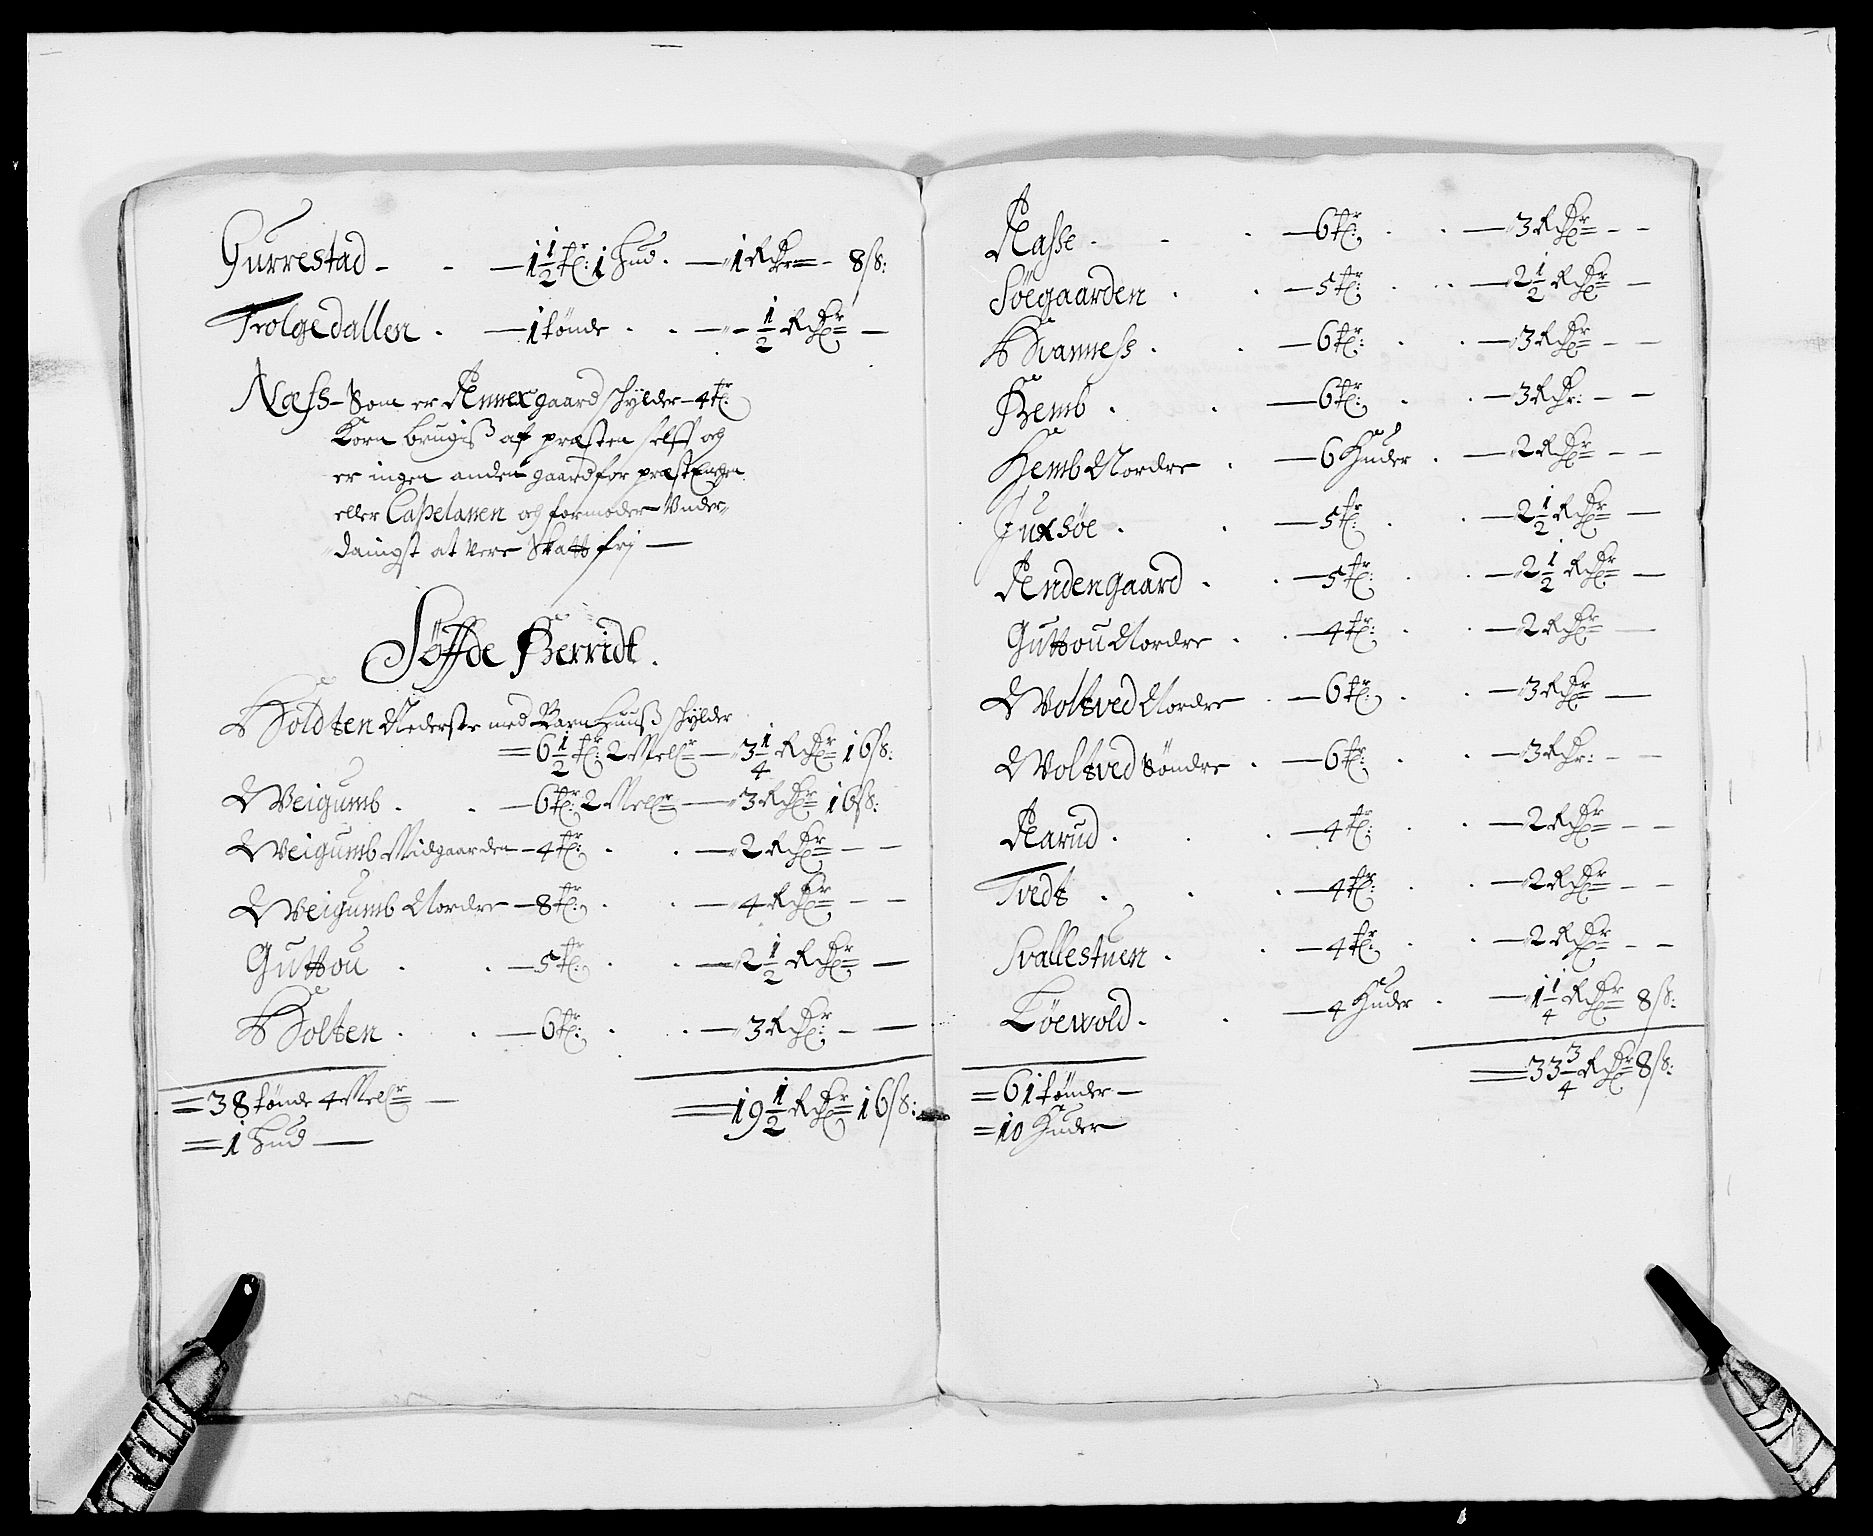 Gurrestad - - — 1 1/2 tr: 1 Hud . — 1 Rdr — 8 s:
Trolgedallen . — 1 tønde . . — 1/2 Rdr —
Næss - Som er Annex gaard schylder - 4 tr:
Korn brugis af præsten selff och
er ingen anden gaard for præst Enchen
eller Capelanen och formoder Vnder=
daingst at vere Skatt frj —
Søffde Herridt .
Holdten Nederste med Barn Huus schylder
= 6 1/2 tr: 2 Melr — 3 1/4 Rdr 16 s:
Weigumb . . — 6 tr: 2 Melr — 3 Rdr 16 s:
Weigumb Midgaarden — 4 tr: . . — 2 Rdr — —
Weigumb Nordre — 8 tr: . . — 4 Rdr — —
Guttou . . — 5 tr: . . — 2 1/2 Rdr —
Holten . . — 6 tr: . . — 3 Rdr — —
= 38 tønde 4 Melr — = 19 1/2 Rdr 16 s:
= 1 Hud —
Aasse . . . — 6 tr: . . — 3 Rdr — —
Søegaarden . . — 5 tr: . . — 2 1/2 Rdr —
Hvanness . . — 6 tr: . . — 3 Rdr — —
Hemb . . — 6 tr: . . — 3 Rdr: — —
Hemb Nordre . — 6 Huder . — 2 Rdr — —
Juxsøe . . — 5 tr: . . — 2 1/2 Rdr —
Andengaard . . — 5 tr: . . — 2 1/2 Rdr —
Guttou Nordre . . — 4 tr: . . — 2 Rdr —
Woltved Nordre . — 6 tr: . . — 3 Rdr —
Woltved Søndre . — 6 tr: . . — 3 Rdr: — —
Aarud . . . — 4 tr: . . — 2 Rdr — —
Tvedt . . . — 4 tr: . . — 2 Rdr — —
Svallestuen . . — 4 tr: . . — 2 Rdr — —
Löewold . . — 4 Huder . — 1 1/4 Rdr 8 s:
= 61 tønder — = 33 3/4 Rdr 8 s:
= 10 Huder